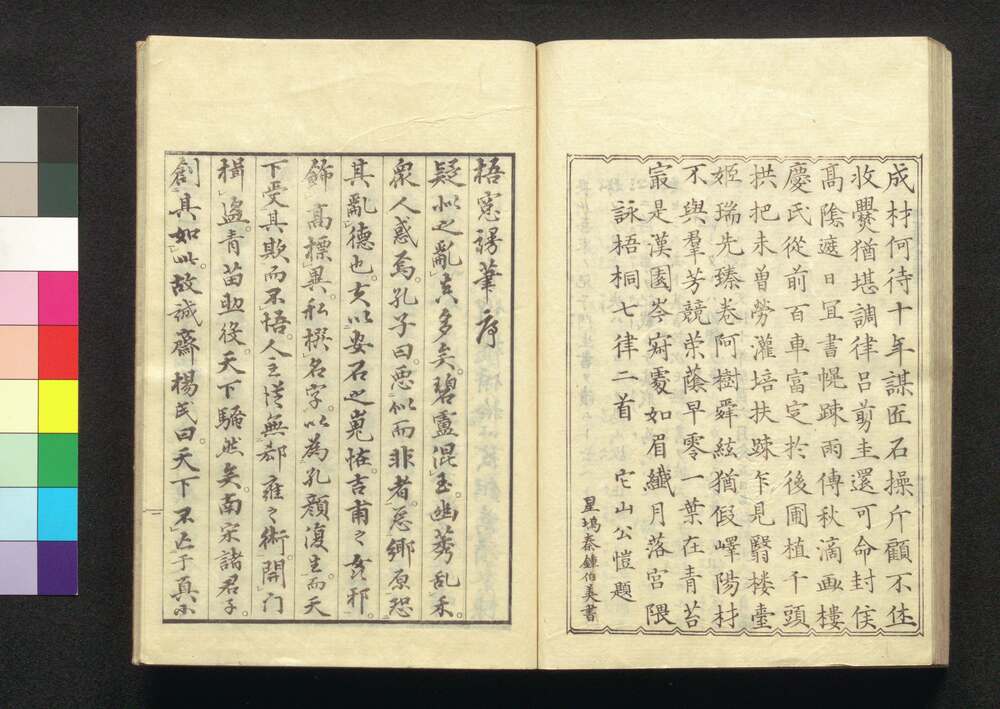 成材何待十年謀匠石操斤顧不休
收爨猶堪調律呂剪圭還可命封侯
高陰遮日冝書幌踈雨傳秋滴画樓
慶氏從前百車富定於後圃植千頭
拱把未曽勞灌培扶踈乍見翳楼臺
姬瑞先臻卷阿樹舜絃猶假嶧陽材
不與羣芳競荣蔭早零一葉在青苔
冣是漢園岑寂處如眉纖月落宮隈
詠梧桐七律二首 它山公愷題
星塢秦鍾伯美書
梧窓謾筆序
疑似之亂真多矣碧盧混玉幽莠乱禾
衆人惑焉孔子曰惡似而非者惡鄉原恐
其亂德也夫以安石之嵬恠吉甫之姦邪
飾高標異私撰名字以為孔顏復生而天
下受其欺而不悟人主從無郤雍之術開門
揖盗青苗助役天下騷然矣南宋諸君子
創其如此故誠齋楊氏曰天下不亡于真小